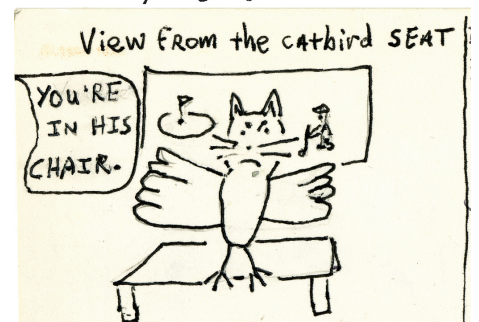 View from the catbird SEAT
YOU'RE
IN HIS
CHAIR.